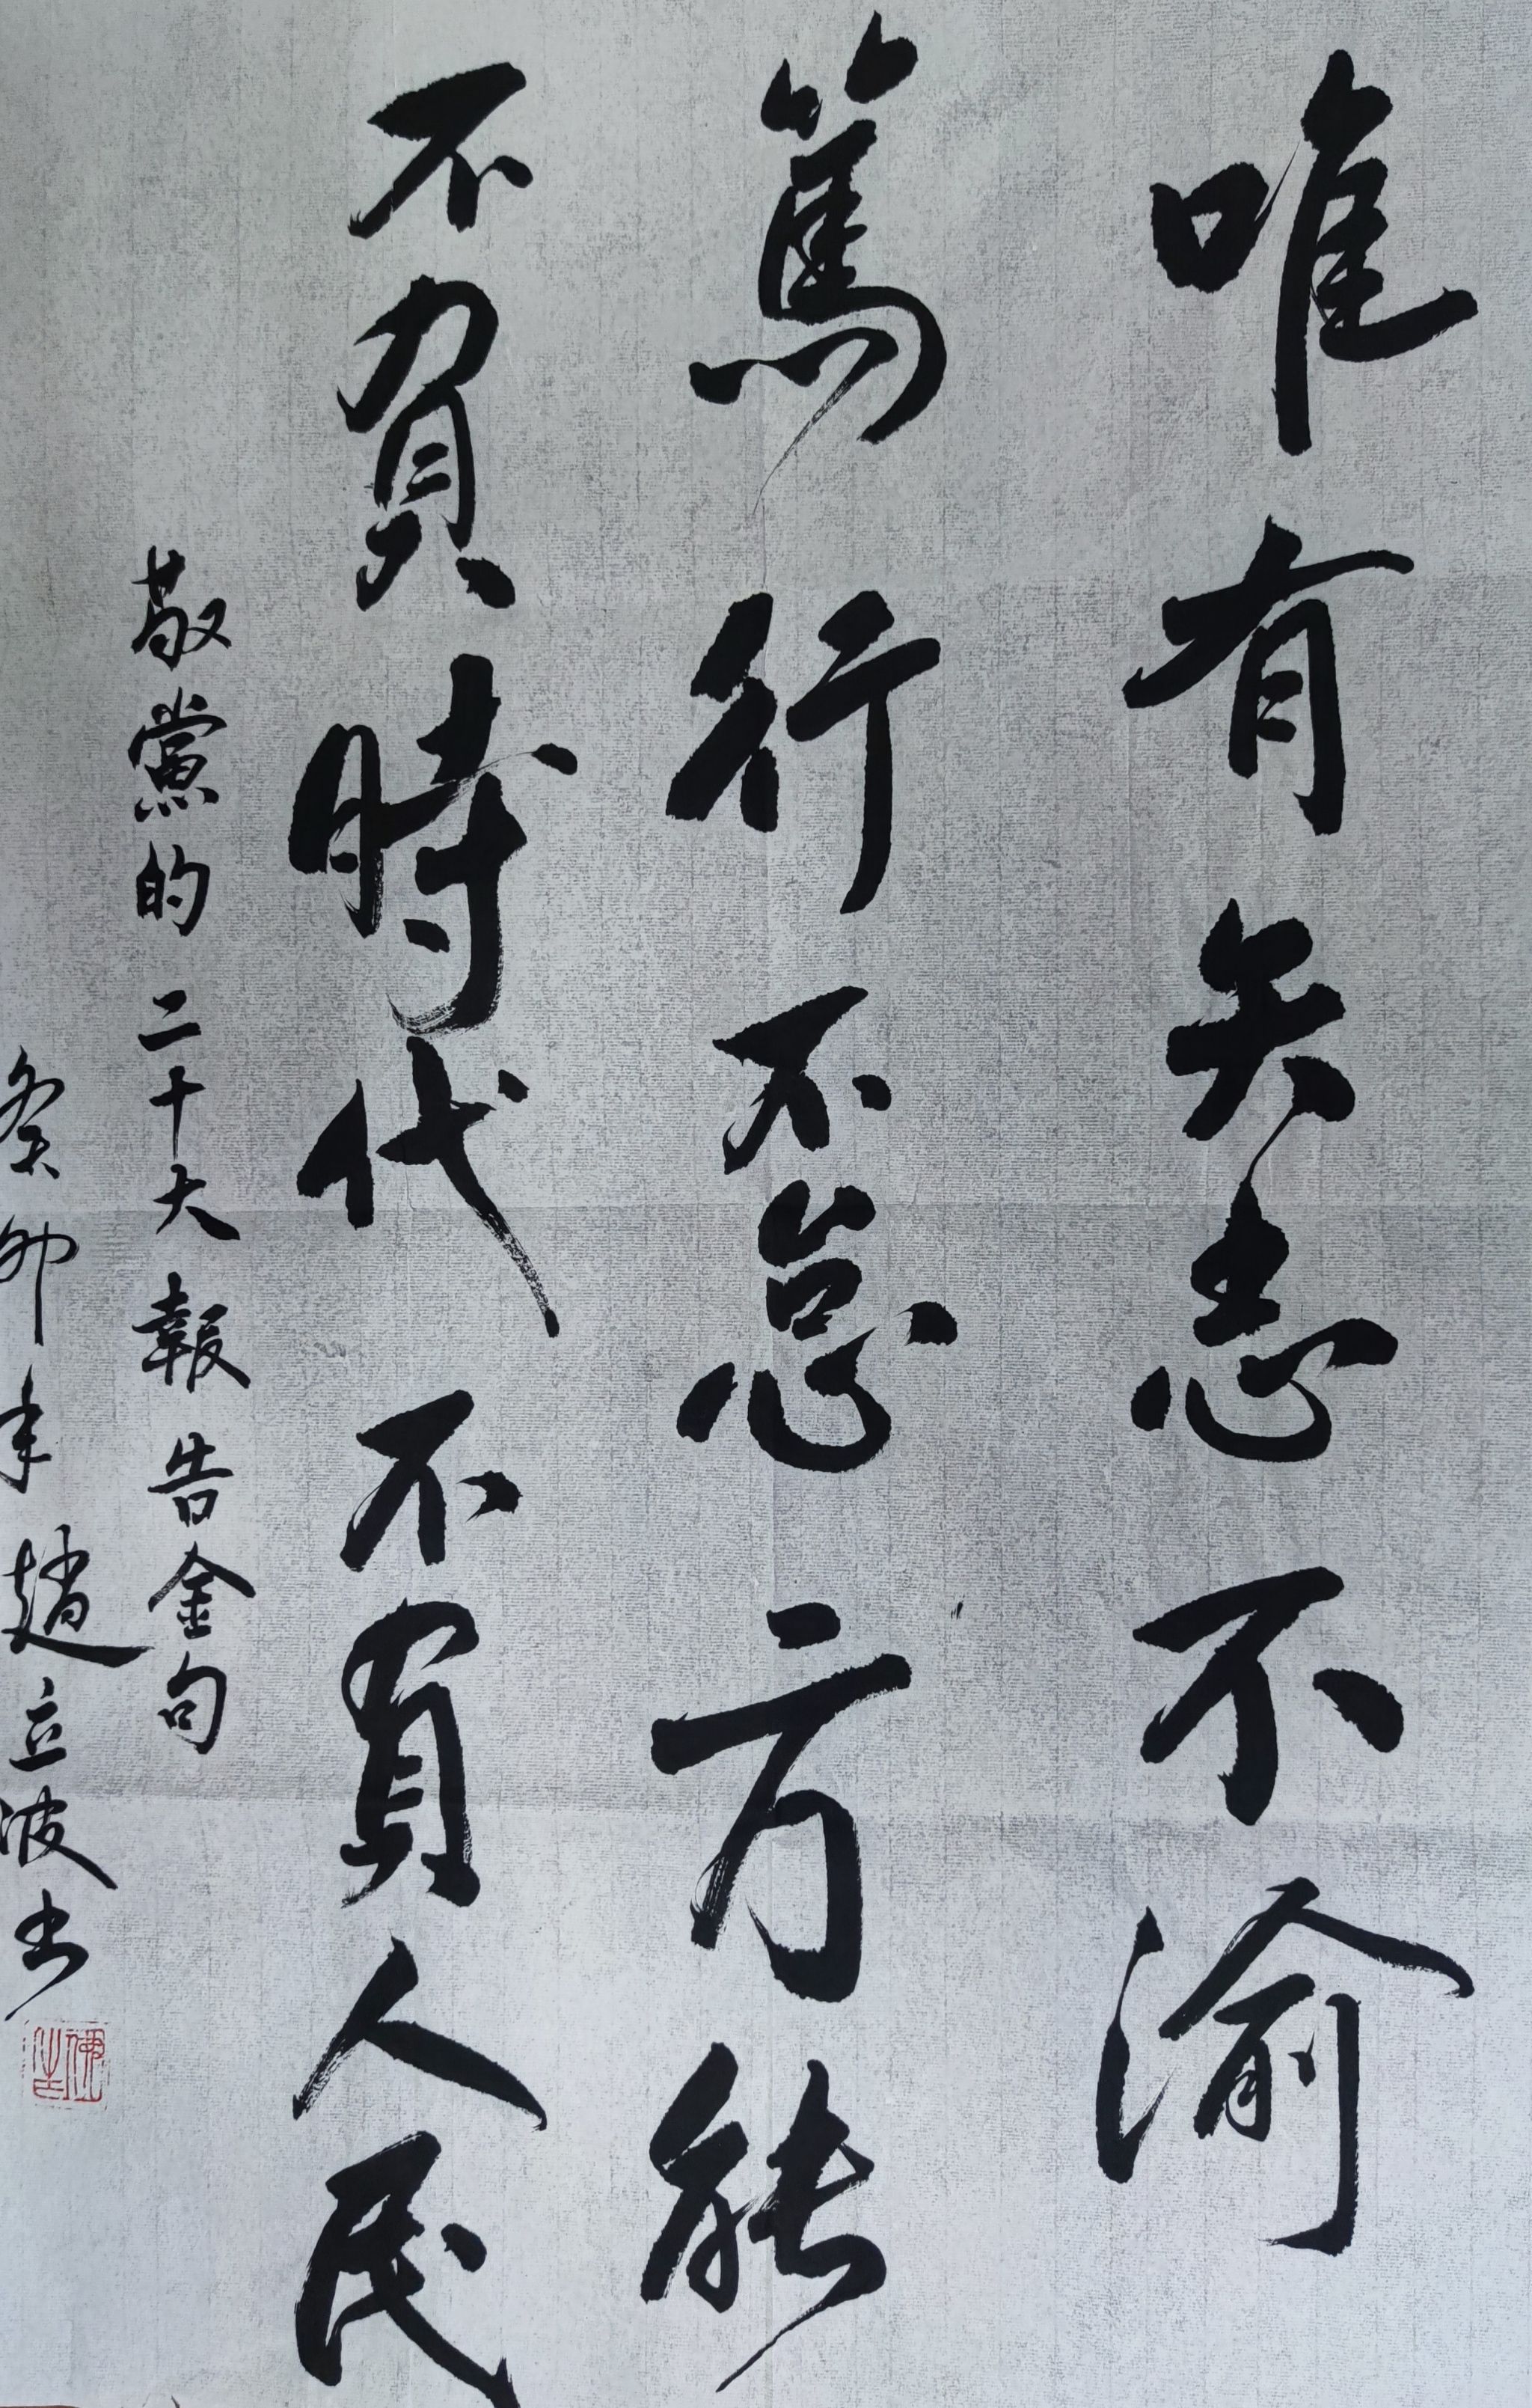 唯有矢志不渝
篤行不怠方能
不負時代不負人民
敬黨的二十大報告金句
癸卯年趙立波书